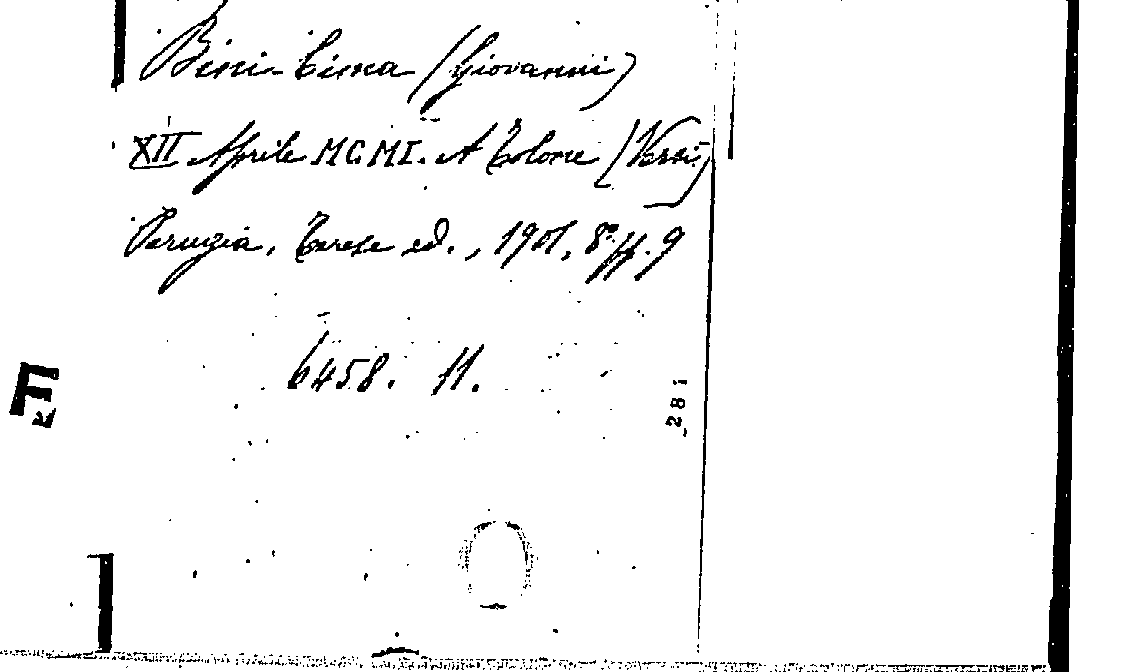 Bini-Cima (Giovanni)
XII Aprile MCMI. A Tolone (Versi)
Perugia, Terese ed., 1901, 8° pp. 9
6458. 11.
281
F